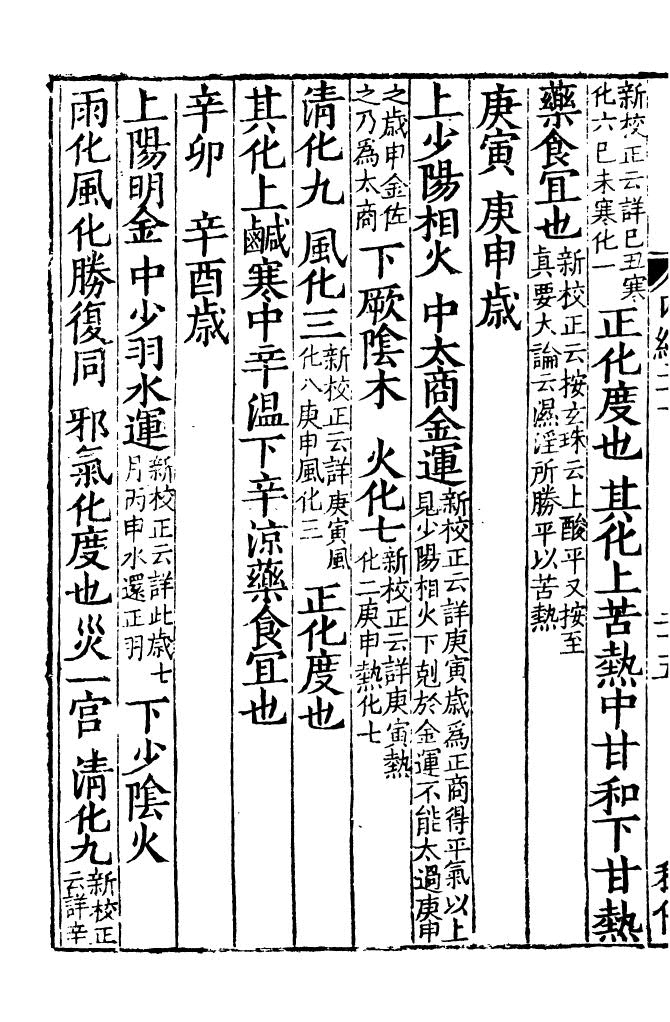 新校正云詳己丑寒化六己未寒化一正化度也　其化上苦熱中甘和下甘熱
藥食宜也新校正云按玄珠云上酸平又按至真要大論云濕淫所勝平以苦熱
庚寅　庚申歳
上少陽相火　中太商金運新校正云詳庚寅歳爲正商得平氣以上見少陽相火下剋於金運不能太過庚申
之歳申金佐之乃爲太商下厥陰木　火化七新校正云詳庚寅熱化二庚申熱化七
清化九　風化三新校正云詳庚寅風化八庚申風化三　正化度也
其化上鹹寒中辛温下辛涼藥食宜也
辛卯　辛酉歳
上陽明金　中少羽水運新校正云詳此歳七月丙申水還正羽　下少陰火
雨化風化勝復同　邪氣化度也災一宫　清化九新校正云詳辛